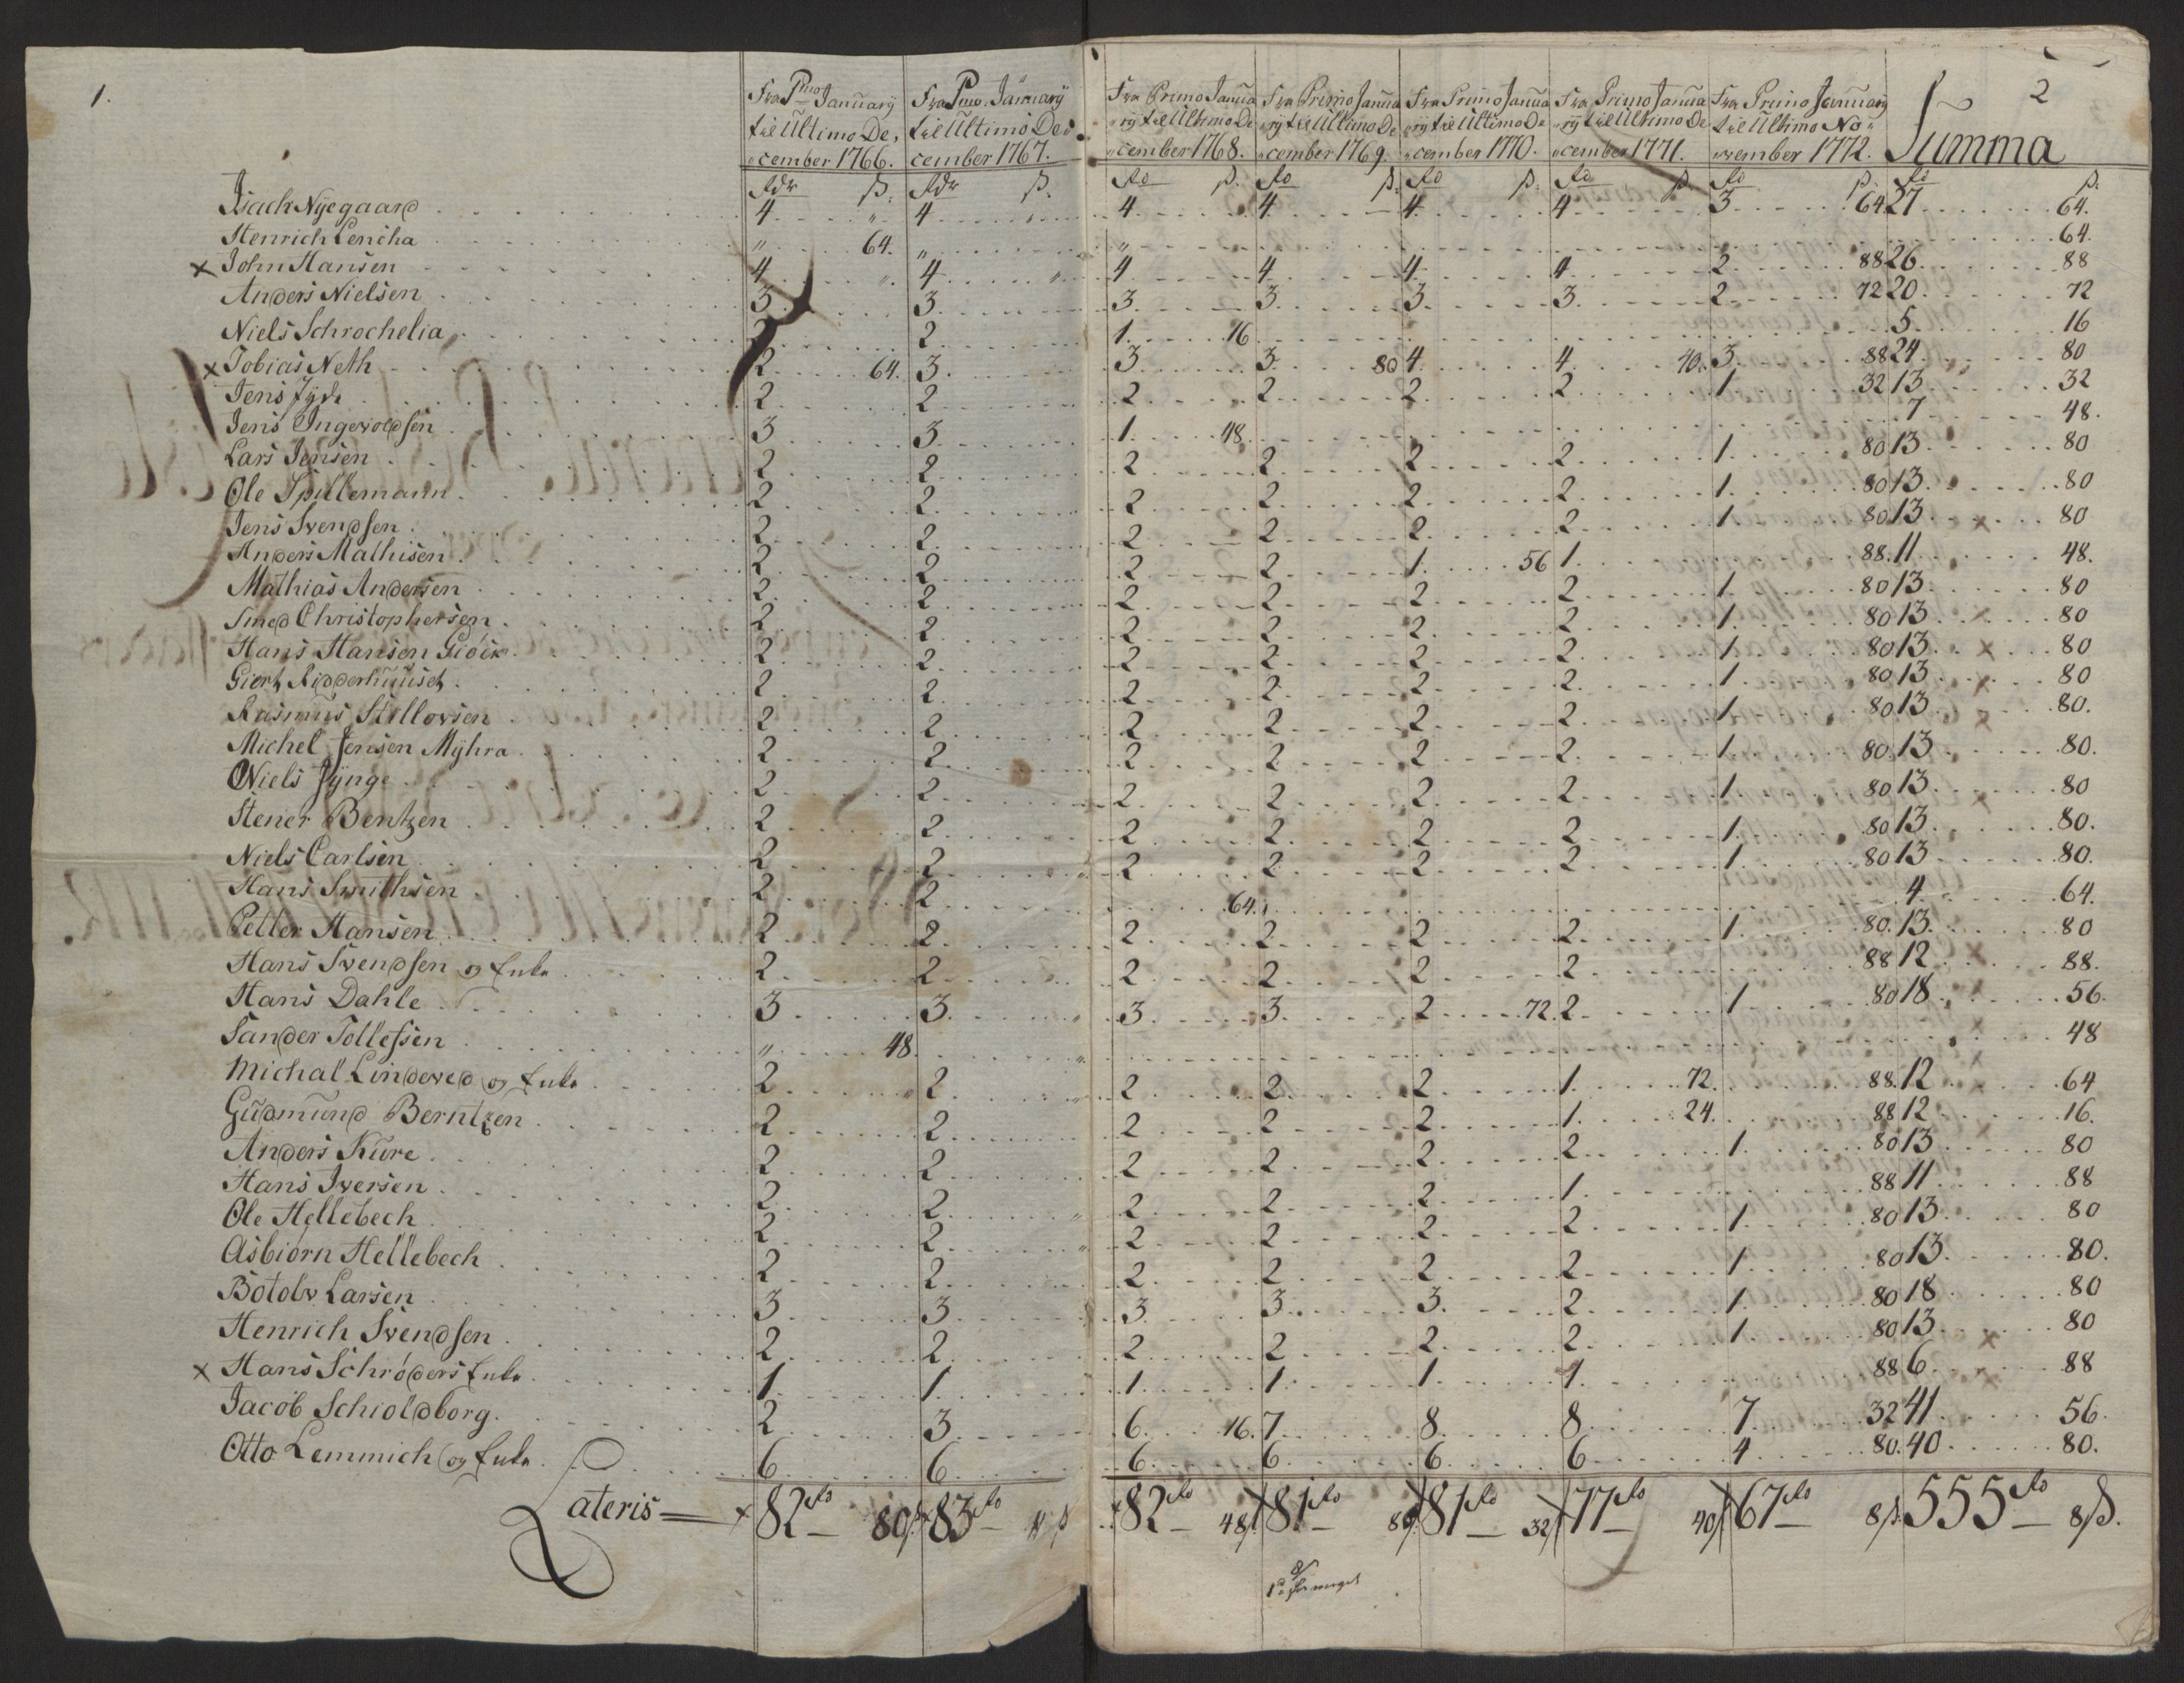 1.
2
Fra Pmo January til Ultimo De, cember 1766. | Fra Pmo. January til Ultimo De cember 1767. | Fra Primo Janua rÿ til Ultimo De cember 1768. | Fra Primo Janua rÿ til Ultimo De cember 1769. | Fra Primo Janua rÿ til Ultimo De cember 1770. | Fra Primo Janua rÿ til Ultimo De cember 1771. | Fra Primo January til Ultimo No vember 1772. | Summa
Rdr ß. | Rdr ß. | Rd ß. | Rd ß. | Rd ß. | Rd ß. | Rd ß. | Rd ß.
Isach Nÿegaard 4 " | 4 " | 4 | 4 | 4 | 4 | 3 64 | 27 64.
Henrich Lencha " 64. | " | " | | | | | 64.
x John Hansen 4 " | 4 " | 4 | 4 | 4 | 4 | 2 88 | 26 88
Anders Nielsen 3 | 3 | 3 | 3 | 3 | 3 | 2 72 | 20 72
Niels Schrochelia 2 | 2 | 1 16 | | | | | 5 16
x Tobias Neth 2 64. | 3 | 3 | 3 80 | 4 | 4 40. | 3 88 | 24 80
Jens Jÿde 2 | 2 | 2 | 2 | 2 | 2 | 1 32 | 13 32
Jens Ingevoldsen 3 | 3 | 1 48 | | | | | 7 48.
Lars Jensen 2 | 2 | 2 | 2 | 2 | 2 | 1 80 | 13 80
Ole Spillemann 2 | 2 | 2 | 2 | 2 | 2 | 1 80 | 13 80
Jens Svendsen 2 | 2 | 2 | 2 | 2 | 2 | 1 80 | 13 x 80
Anders Mathisen 2 | 2 | 2 | 2 | 1 56 | 1 | 88. | 11 48.
Mathias Andersen 2 | 2 | 2 | 2 | 2 | 2 | 1 80 | 13 80
Smed Christophersen 2 | 2 | 2 | 2 | 2 | 2 | 1 80 | 13 80
Hans Hansen Giöck 2 | 2 | 2 | 2 | 2 | 2 | 1 80 | 13 80
Giert Ridderhuuset 2 | 2 | 2 | 2 | 2 | 2 | 1 80 | 13 80
Rasmus Stillovsen 2 | 2 | 2 | 2 | 2 | 2 | 1 80 | 13 80.
Michel Jensen Mÿhra 2 | 2 | 2 | 2 | 2 | 2 | 1 80 | 13 80.
Niels Jÿnge 2 | 2 | 2 | 2 | 2 | 2 | 1 80 | 13 80
Stener Bentzen 2 | 2 | 2 | 2 | 2 | 2 | 1 80 | 13 80.
Niels Carlsen 2 | 2 | 2 | 2 | 2 | 2 | 1 80 | 13 80.
Hans Smithsen 2 | 2 | 64. | | | | | 4 64.
Petter Hansen 2 | 2 | 2 | 2 | 2 | 2 | 1 80. | 13 80
Hans Svendsen og Enke 2 | 2 | 2 | 2 | 2 | 2 | 88 | 12 88.
Hans Dahle 3 | 3 | 3 | 3 | 2 72. | 2 | 1 80 | 18 56.
Sander Tollefsen " 48. | | | | | | | 48
Michal Lindeved og Enke 2 | 2 | 2 | 2 | 2 | 1 72. | 88. | 12 64
Gudmund Berntzen 2 | 2 | 2 | 2 | 2 | 1 24. | 88 | 12 16.
Anders Kure 2 | 2 | 2 | 2 | 2 | 2 | 1 80 | 13 80
Hans Iversen 2 | 2 | 2 | 2 | 2 | 1 | 88 | 11 88
Ole Hellebech 2 | 2 | 2 | 2 | 2 | 2 | 1 80 | 13 80
Asbiörn Hellebech 2 | 2 | 2 | 2 | 2 | 2 | 1 80 | 13 80.
Botolv Larsen 3 | 3 | 3 | 3 | 3 | 2 | 1 80 | 18 80
Henrich Svendsen 2 | 2 | 2 | 2 | 2 | 2 | 1 80 | 13 80
x Hans Schröders Enke 1 | 1 | 1 | 1 | 1 | 1 | 88 | 6 88
Jacob Schioldborg 2 | 3 | 6 16. | 7 | 8 | 8 | 7 32 | 41 56.
Otto Lemmich og Enke 6 | 6 | 6 | 6 | 6 | 6 | 4 80. | 40 80.
Lateris = 82 Rd 80 ß | 83 Rd ß | 82 Rd 48 ß | 81 Rd 80 ß | 81 Rd 32 ß | 77 Rd 40 ß | 67 Rd 8 ß | 555 Rd 8 ß.